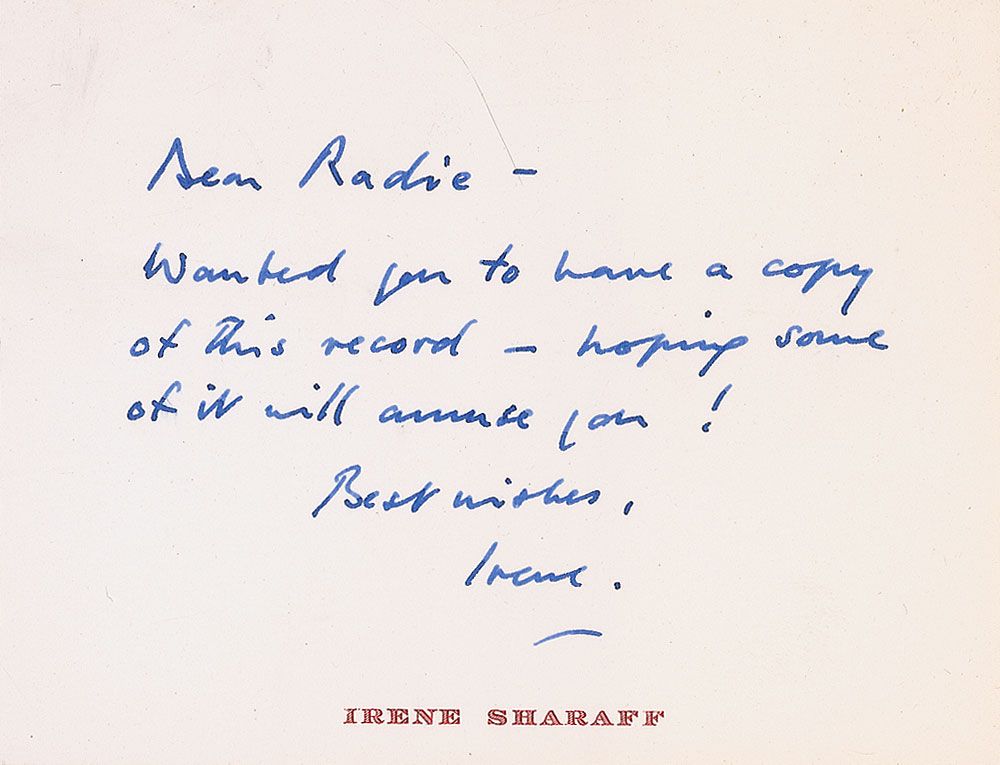 Dear Radie –
Wanted you to have a copy
of this record – hoping some
of it will amuse you !
Best wishes,
Irene.
IRENE SHARAFF